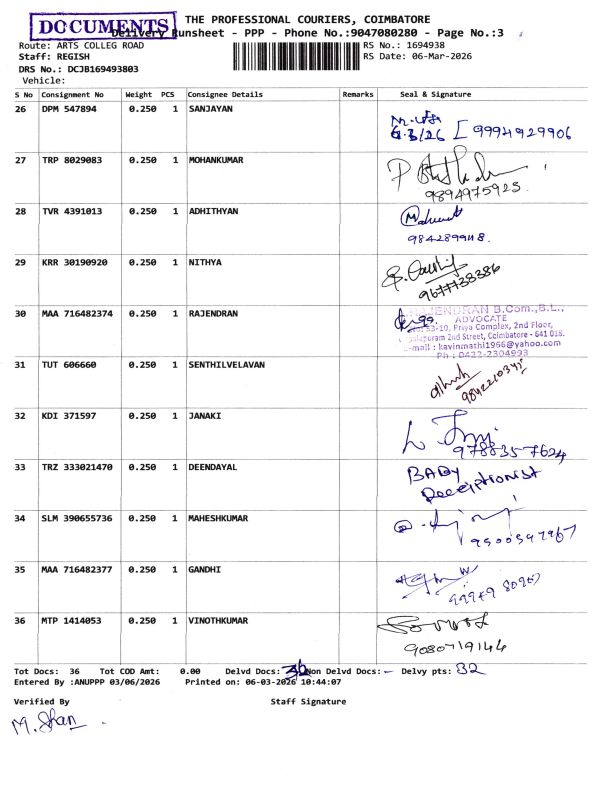 DOCUMENTS
THE PROFESSIONAL COURIERS, COIMBATORE
Delivery Runsheet - PPP - Phone No.:9047080280 - Page No.:3
Route: ARTS COLLEG ROAD
RS No.: 1694938
Staff: REGISH
RS Date: 06-Mar-2026
DRS No.: DCJB169493803
Vehicle:
S No Consignment No Weight PCS Consignee Details Remarks Seal & Signature
26 DPM 547894 0.250 1 SANJAYAN
6.3/26 [ 9994929906
27 TRP 8029083 0.250 1 MOHANKUMAR
9894975925.
28 TVR 4391013 0.250 1 ADHITHYAN
9842899118.
29 KRR 30190920 0.250 1 NITHYA
9677738386
30 MAA 716482374 0.250 1 RAJENDRAN
RAJENDRAN B.Com.,B.L.,
ADVOCATE
53-10, Priya Complex, 2nd Floor,
2nd Street, Coimbatore - 641 018.
E-mail : kavinmathi1966@yahoo.com
Ph : 0422-2304993
31 TUT 606660 0.250 1 SENTHILVELAVAN
32 KDI 371597 0.250 1 JANAKI
9788357624
33 TRZ 333021470 0.250 1 DEENDAYAL
BABY
Receiptionist
34 SLM 390655736 0.250 1 MAHESHKUMAR
9500597967
35 MAA 716482377 0.250 1 GANDHI
36 MTP 1414053 0.250 1 VINOTHKUMAR
9080719144
Tot Docs: 36 Tot COD Amt: 0.00 Delvd Docs: 36 Non Delvd Docs: - Delvy pts: 32
Entered By :ANUPPP 03/06/2026 Printed on: 06-03-2026 10:44:07
Verified By Staff Signature
M. Shan